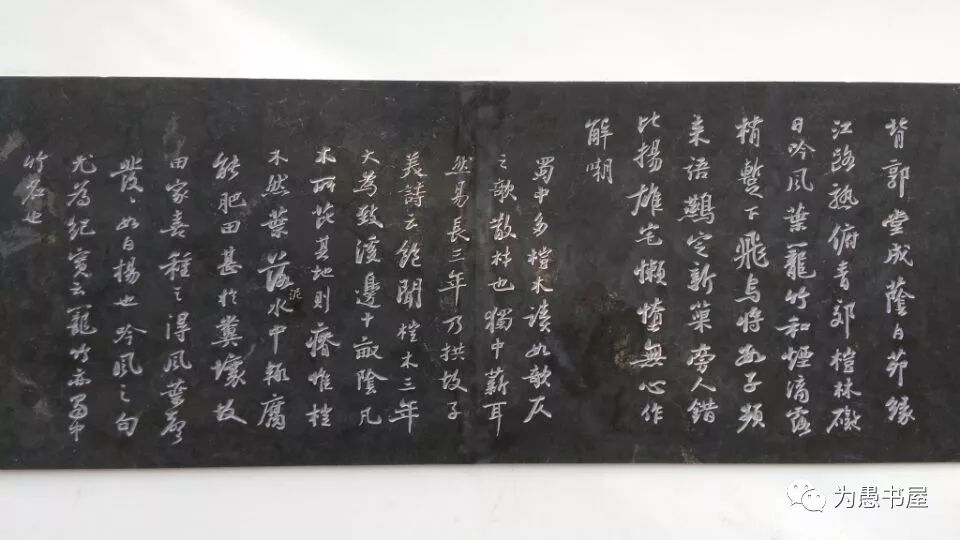 背郭堂成蔭白茆緣
江路熟俯青郊榿林礙
日吟風葉籠竹和煙滴露
梢蹔下飛烏將數子頻
来语鷰定新巢旁人錯
比揚雄宅懶惰無心作
解嘲
蜀中多榿木讀如欹仄
之欹散材也獨中薪耳
然易長三年乃拱故子
美詩云飽聞榿木三年
大為致溪邊十畝陰凡
木所芘其地則瘠惟榿
不然葉落水中輒腐
能肥田甚於糞壤故
田家喜種之得風葉聲
發發如白楊也吟風之句
尤為紀實云籠竹亦蜀中
竹名也
为愚书屋